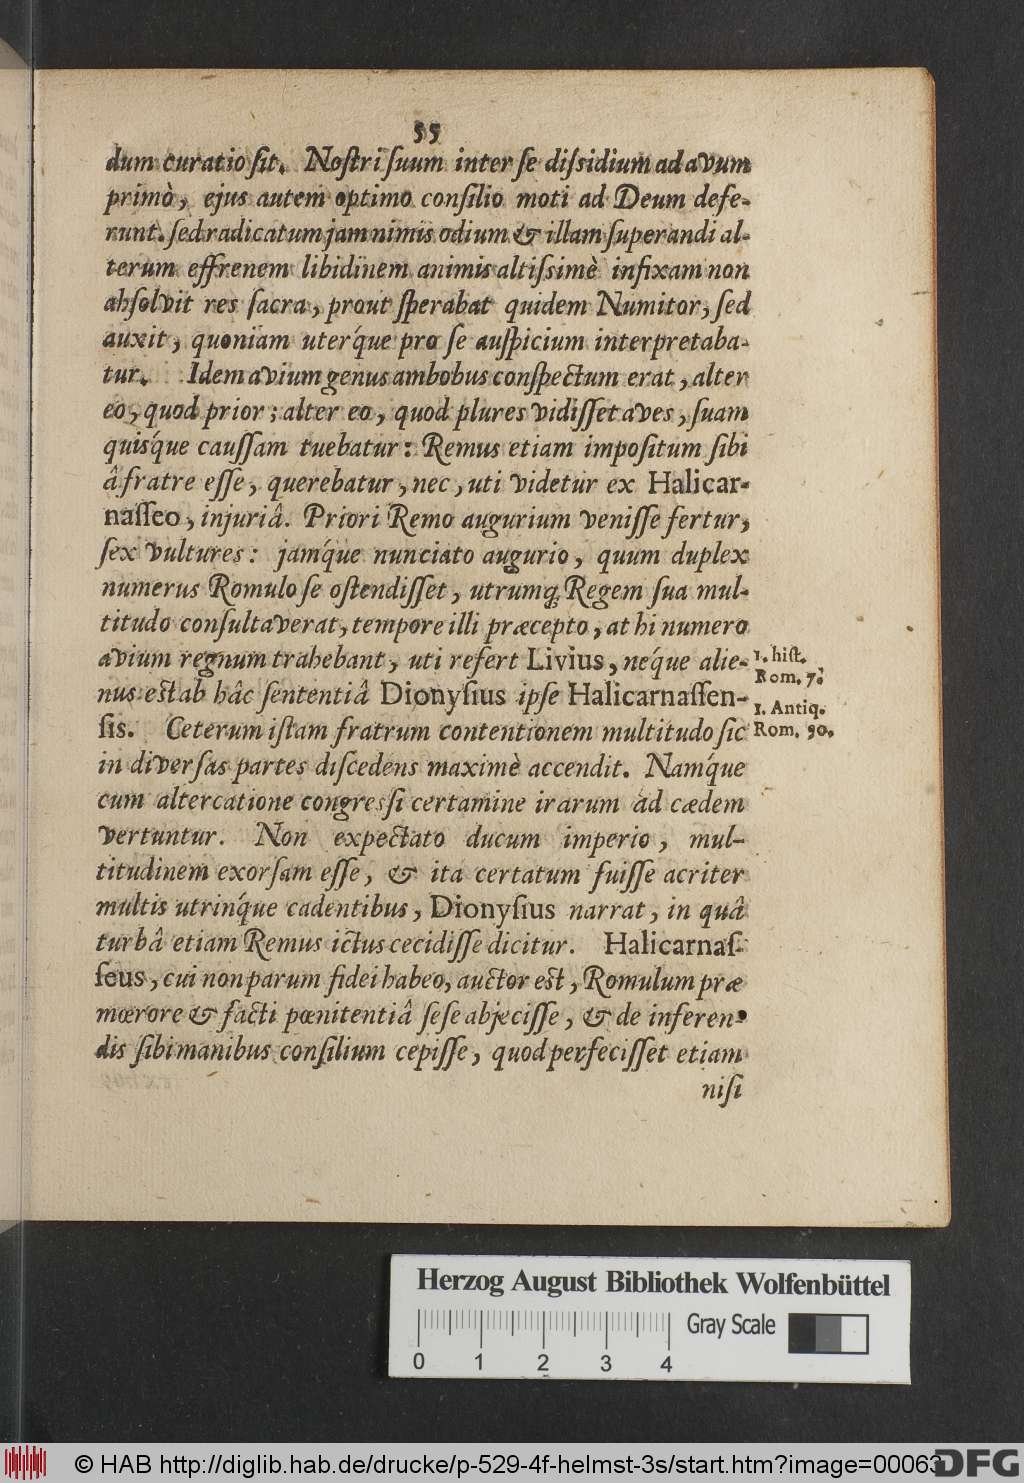 55
dum curatio ſit. Noſtri ſuum inter ſe diſsidium ad avum
primò, ejus autem optimo conſilio moti ad Deum defe-
runt. ſed radicatum jam nimis odium & illam ſuperandi al-
terum effrenem libidinem animis altiſsimè infixam non
abſolvit res ſacra, prout ſperabat quidem Numitor, ſed
auxit, quoniam uterq́ue pro ſe auſpicium interpretaba-
tur. Idem avium genus ambobus conſpectum erat, alter
eo, quod prior; alter eo, quod plures vidiſſet aves, ſuam
quisq́ue cauſſam tuebatur: Remus etiam impoſitum ſibi
â fratre eſſe, querebatur, nec, uti videtur ex Halicar-
naſſeo, injuriâ. Priori Remo augurium veniſſe fertur,
ſex vultures: jamq́ue nunciato augurio, quum duplex
numerus Romulo ſe oſtendiſſet, utrumq; Regem ſua mul-
titudo conſultaverat, tempore illi præcepto, at hi numero
avium regnum trahebant, uti refert Livius, neq́ue alie-
1. hiſt.
Rom. 7.
nus est ab hâc ſententiâ Dionyſius ipſe Halicarnaſſen-
1. Antiq.
ſis. Ceterum iſtam fratrum contentionem multitudo ſic
Rom. 90.
in diverſas partes diſcedens maximè accendit. Namq́ue
cum altercatione congreſſi certamine irarum ad cædem
vertuntur. Non expectato ducum imperio, mul-
titudinem exorſam eſſe, & ita certatum fuiſſe acriter
multis utrinq́ue cadentibus, Dionyſius narrat, in quâ
turbâ etiam Remus ictus cecidiſſe dicitur. Halicarnaſ-
ſeus, cui non parum fidei habeo, auctor est, Romulum præ
mœrore & facti pœnitentiâ ſeſe abjeciſſe, & de inferen-
dis ſibi manibus conſilium cepiſſe, quod perfeciſſet etiam
niſi
Herzog August Bibliothek Wolfenbüttel
Gray Scale
0 1 2 3 4
© HAB http://diglib.hab.de/drucke/p-529-4f-helmst-3s/start.htm?image=00063
DFG